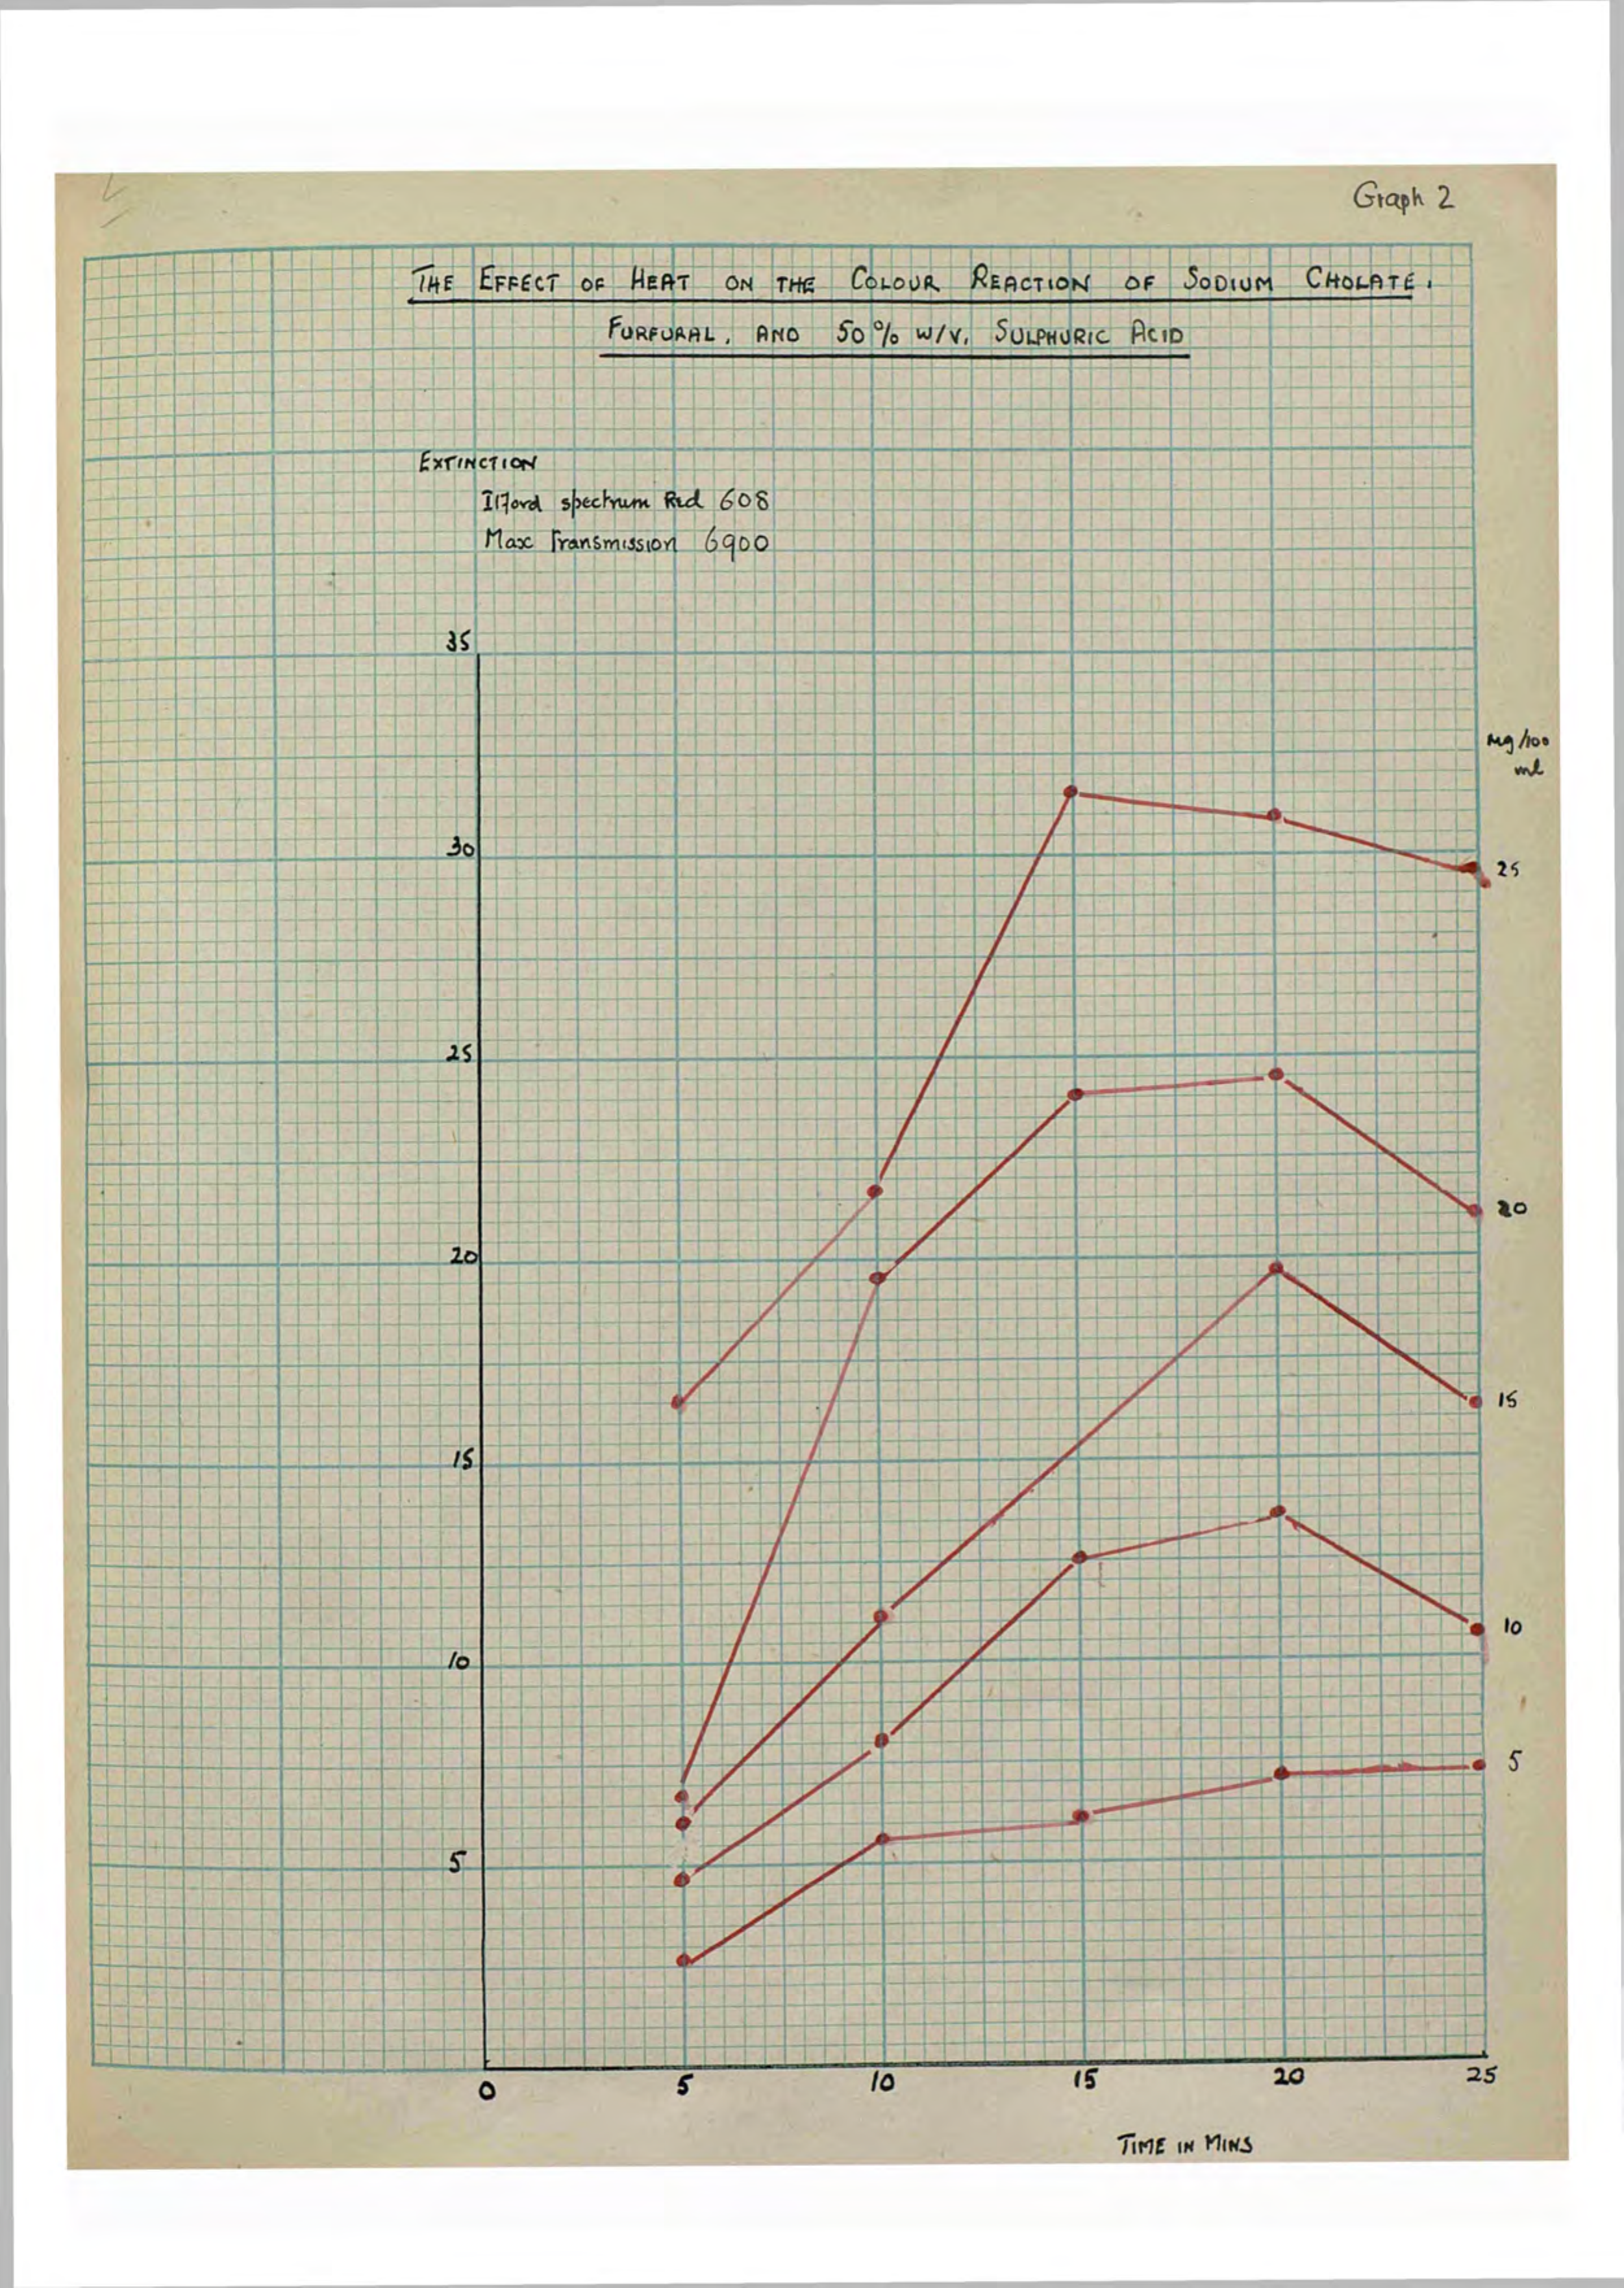 Graph 2
THE EFFECT OF HEAT ON THE COLOUR REACTION OF SODIUM CHOLATE,
FURFURAL, AND 50% W/V, SULPHURIC ACID
EXTINCTION
Ilford spectrum Red 608
Max Transmission 6900
35
mg/100
ml
30
25
25
20
20
15
15
10
10
5
5
0 5 10 15 20 25
TIME IN MINS